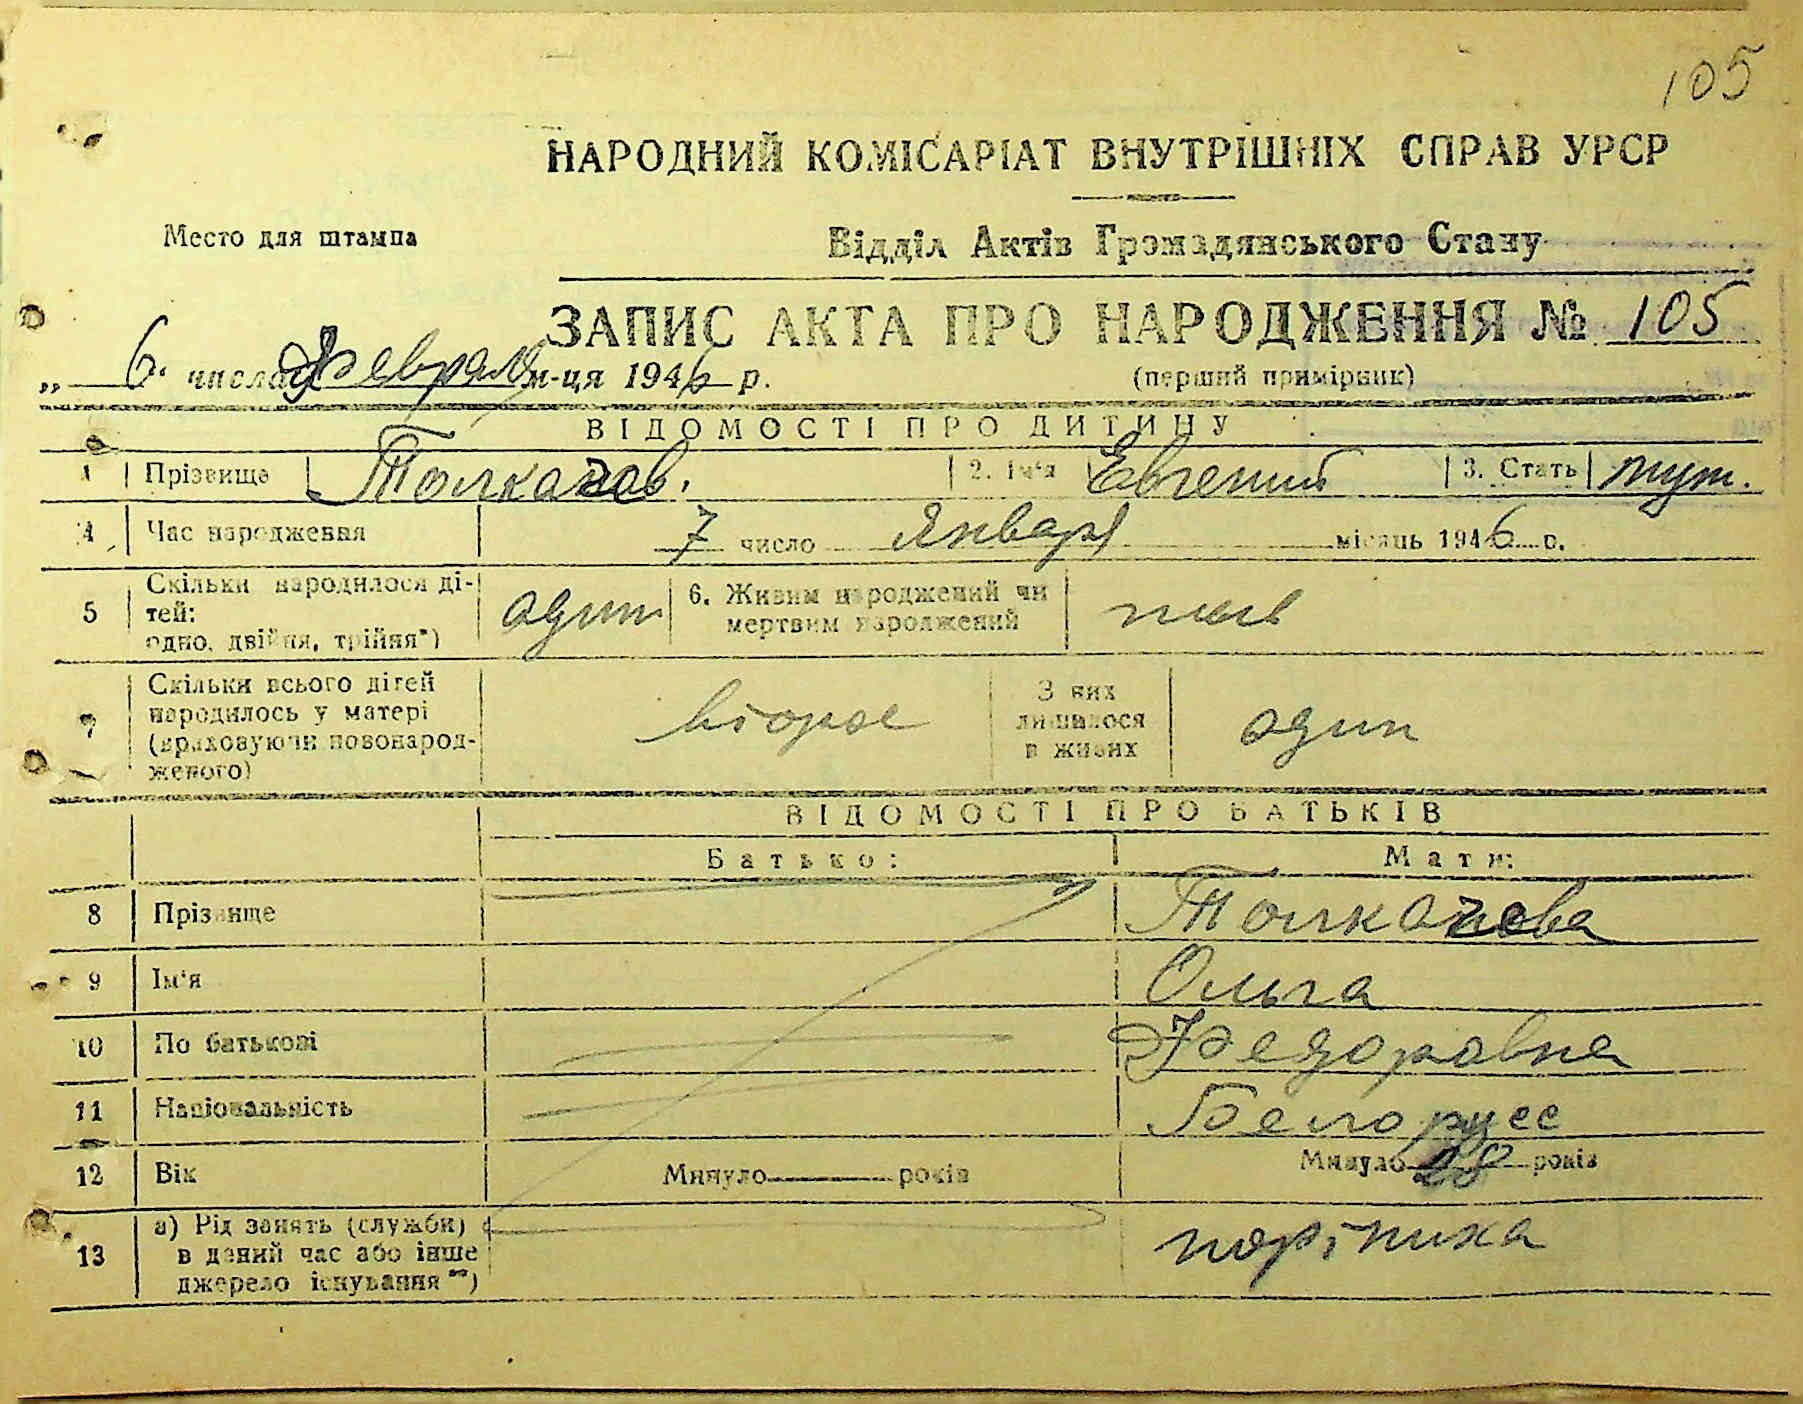 105
НАРОДНИЙ КОМІСАРІАТ ВНУТРІШНІХ СПРАВ УРСР
Место для штампа
Відділ Актів Громадянського Стану
ЗАПИС АКТА ПРО НАРОДЖЕННЯ № 105
„ 6 " числа Февраля м-ця 1946 р.
(перший примірник)
ВІДОМОСТІ ПРО ДИТИНУ
1 Прізвище Толкачов. 2. Ім'я Евгений 3. Стать муж.
4 Час народження 7 число Января місяць 1946 р.
5 Скільки народилося ді-
тей:
одно, двійня, трійня*) один 6. Живим народжений чи
мертвим народжений
7 Скільки всього дітей
народилось у матері
(враховуючи новонарод-
женого) второе З них
лишилося
в живих один
ВІДОМОСТІ ПРО БАТЬКІВ
Батько: Мати:
8 Прізвище Толкачова
9 Ім'я Ольга
10 По батькові Федоровна
11 Національність Белорусс
12 Вік Минуло років Минуло 28 років
13 а) Рід занять (служби)
в даний час або інше
джерело існування **)